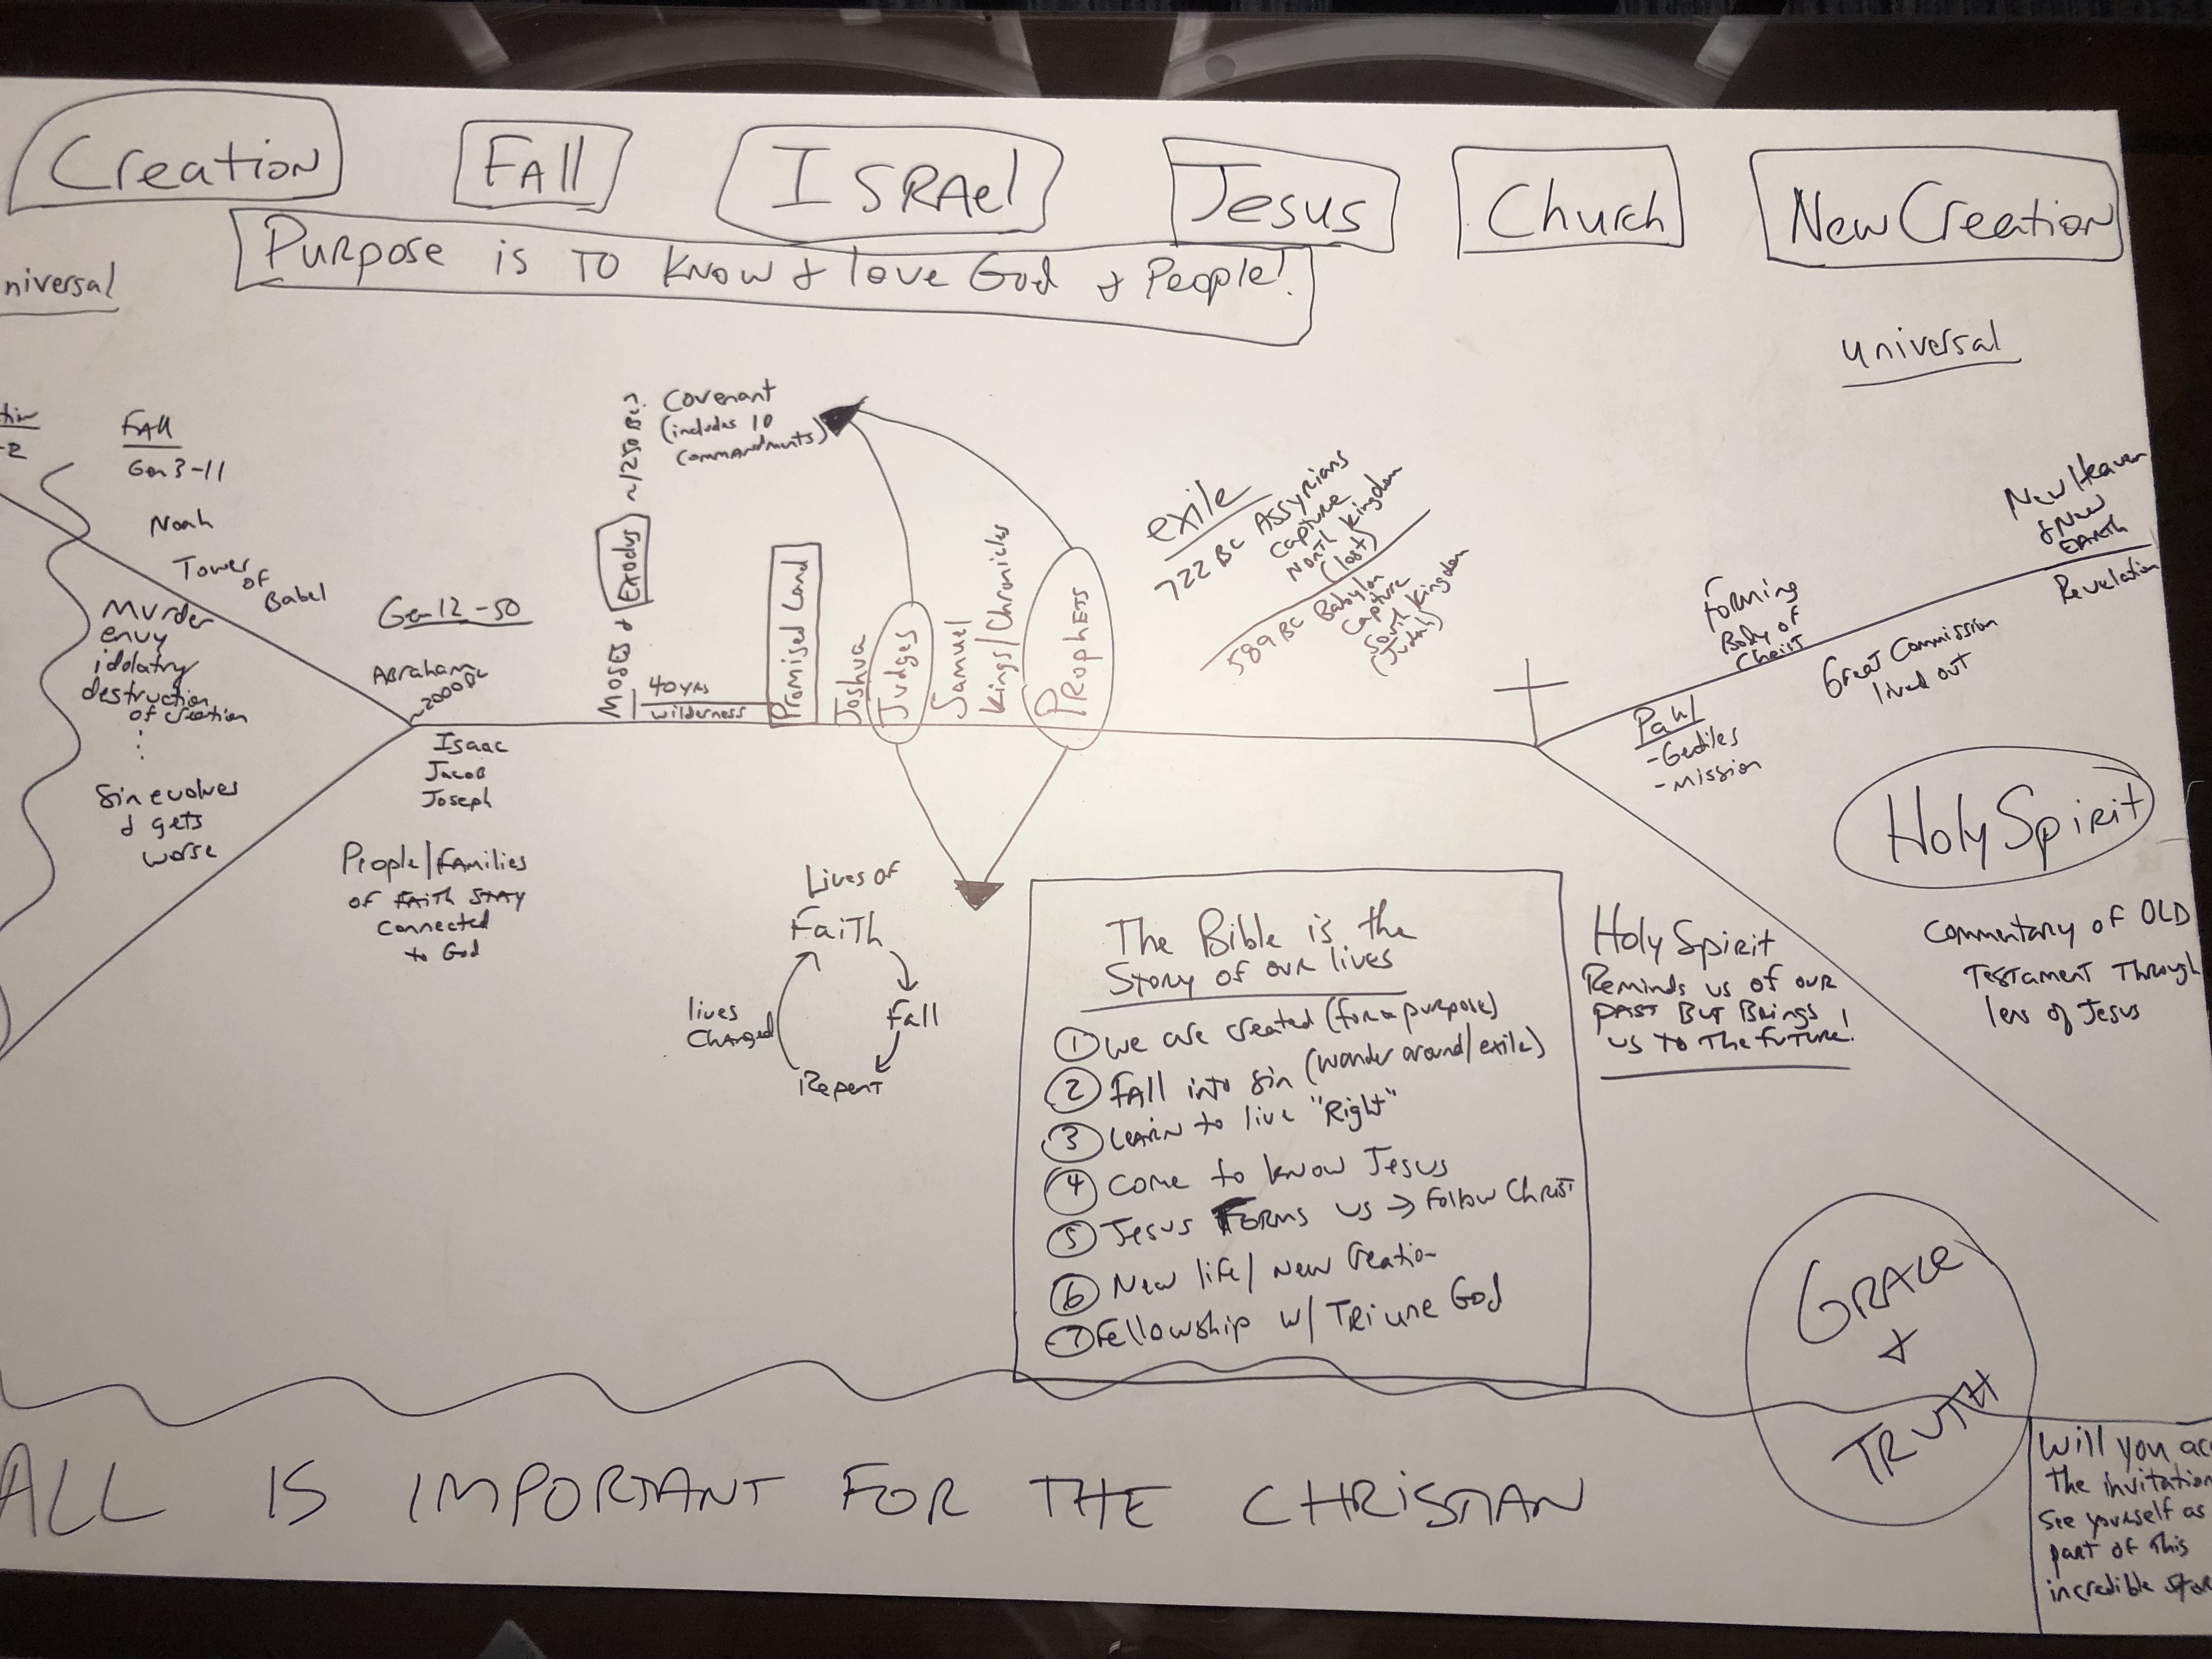 Creation
FAll
ISRAel
Jesus
Church
New Creation
Purpose is To Know & love God & People!
niversal
universal
tion
-2
FAll
Gen 3-11
Noah
Tower
of
Babel
Murder
envy
idolatry
destruction
of creation
Sin evolves
& gets
worse
Gen 12-50
Abraham
~2000BC
Isaac
Jacob
Joseph
People/Families
of FAith STAy
Connected
to God
Moses & Exodus ~1250 BC?
Covenant
(includes 10
commandments)
40 yrs
wilderness
Promised Land
Joshua
Judges
Samuel
Kings/Chronicles
PRophETS
exile
722 BC Assyrians
capture
North Kingdom
(lost)
589 BC Babylon
capture
South Kingdom
(Judah)
Forming
Body of
Christ
New Heaven
& New
EARTh
Revelation
Great Commission
lived out
Paul
- Gentiles
- mission
Holy Spirit
Commentary of OLD
TesTament Through
lens of Jesus
Lives of
FaiTh
Fall
Repent
lives
Changed
The Bible is the
Story of our lives
① we are created (for a purpose)
② FAll into sin (wander around/exile)
③ LeARN to live "Right"
④ Come to know Jesus
⑤ Jesus Forms us → Follow ChrisT
⑥ New life/ new Creation
⑦ Fellowship w/ TRiune God
Holy Spirit
Reminds us of our
pAsT BuT BRings
us To The FuTure!
GRACe
&
TRUTH
ALL IS IMPORTANT FOR THE CHRiSTIAN
Will you acc
The invitation
See yourself as
part of This
incredible stor